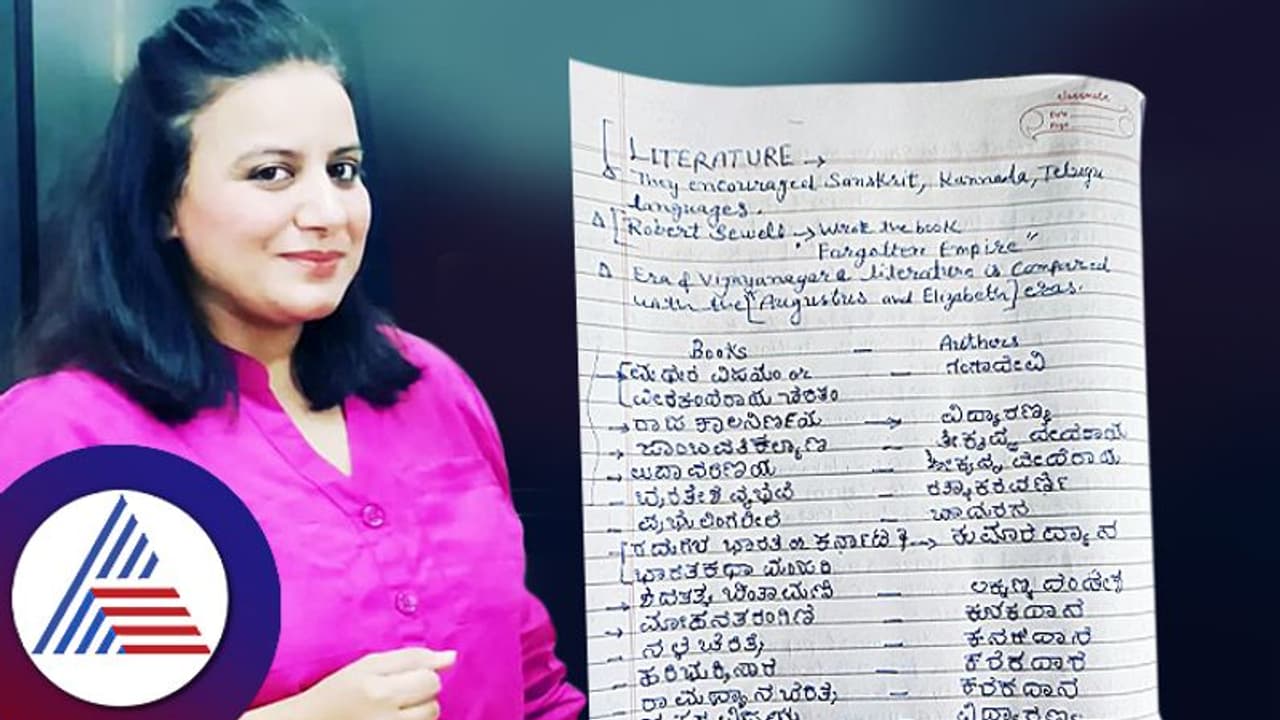 classmate
Date
Page
LITERATURE →
They encouraged Sanskrit, Kannada, Telugu
languages.
Robert Sewell → Wrote the book
"Fargotten Empire"
Era of Vijayanagara literature is Compared
with the [Augustus and Elizabeth] eras.
Books — Authors
ಮಧುರ ವಿಜಯಂ or — ಗಂಗಾದೇವಿ
ವೀರಕಂಪರಾಯ ಚರಿತಂ
ರಾಜ ಕಾಲನಿರ್ಣಯ → ವಿದ್ಯಾರಣ್ಯ
ಜಾಂಬವತಿ ಕಲ್ಯಾಣ — ಶ್ರೀಕೃಷ್ಣ ದೇವರಾಯ
ಉಷಾ ಪರಿಣಯ — ಶ್ರೀಕೃಷ್ಣ ದೇವರಾಯ
ಭರತೇಶ ವೈಭವ — ರತ್ನಾಕರವರ್ಣಿ
ಪ್ರಭುಲಿಂಗಲೀಲೆ — ಚಾಮರಸ
ಗದುಗಿನ ಭಾರತ or ಕರ್ನಾಟ → ಕುಮಾರವ್ಯಾಸ
ಭಾರತಕಥಾ ಮಂಜರಿ
ಶಿವತತ್ವ ಚಿಂತಾಮಣಿ — ಲಕ್ಕಣ್ಣ ದಂಡೇಶ
ಮೋಹನತರಂಗಿಣಿ — ಕನಕದಾಸ
ನಳ ಚರಿತ್ರೆ — ಕನಕದಾಸ
ಹರಿಭಕ್ತಿಸಾರ — ಕನಕದಾಸ
ರಾಮಧ್ಯಾನ ಚರಿತ್ರೆ — ಕನಕದಾಸ